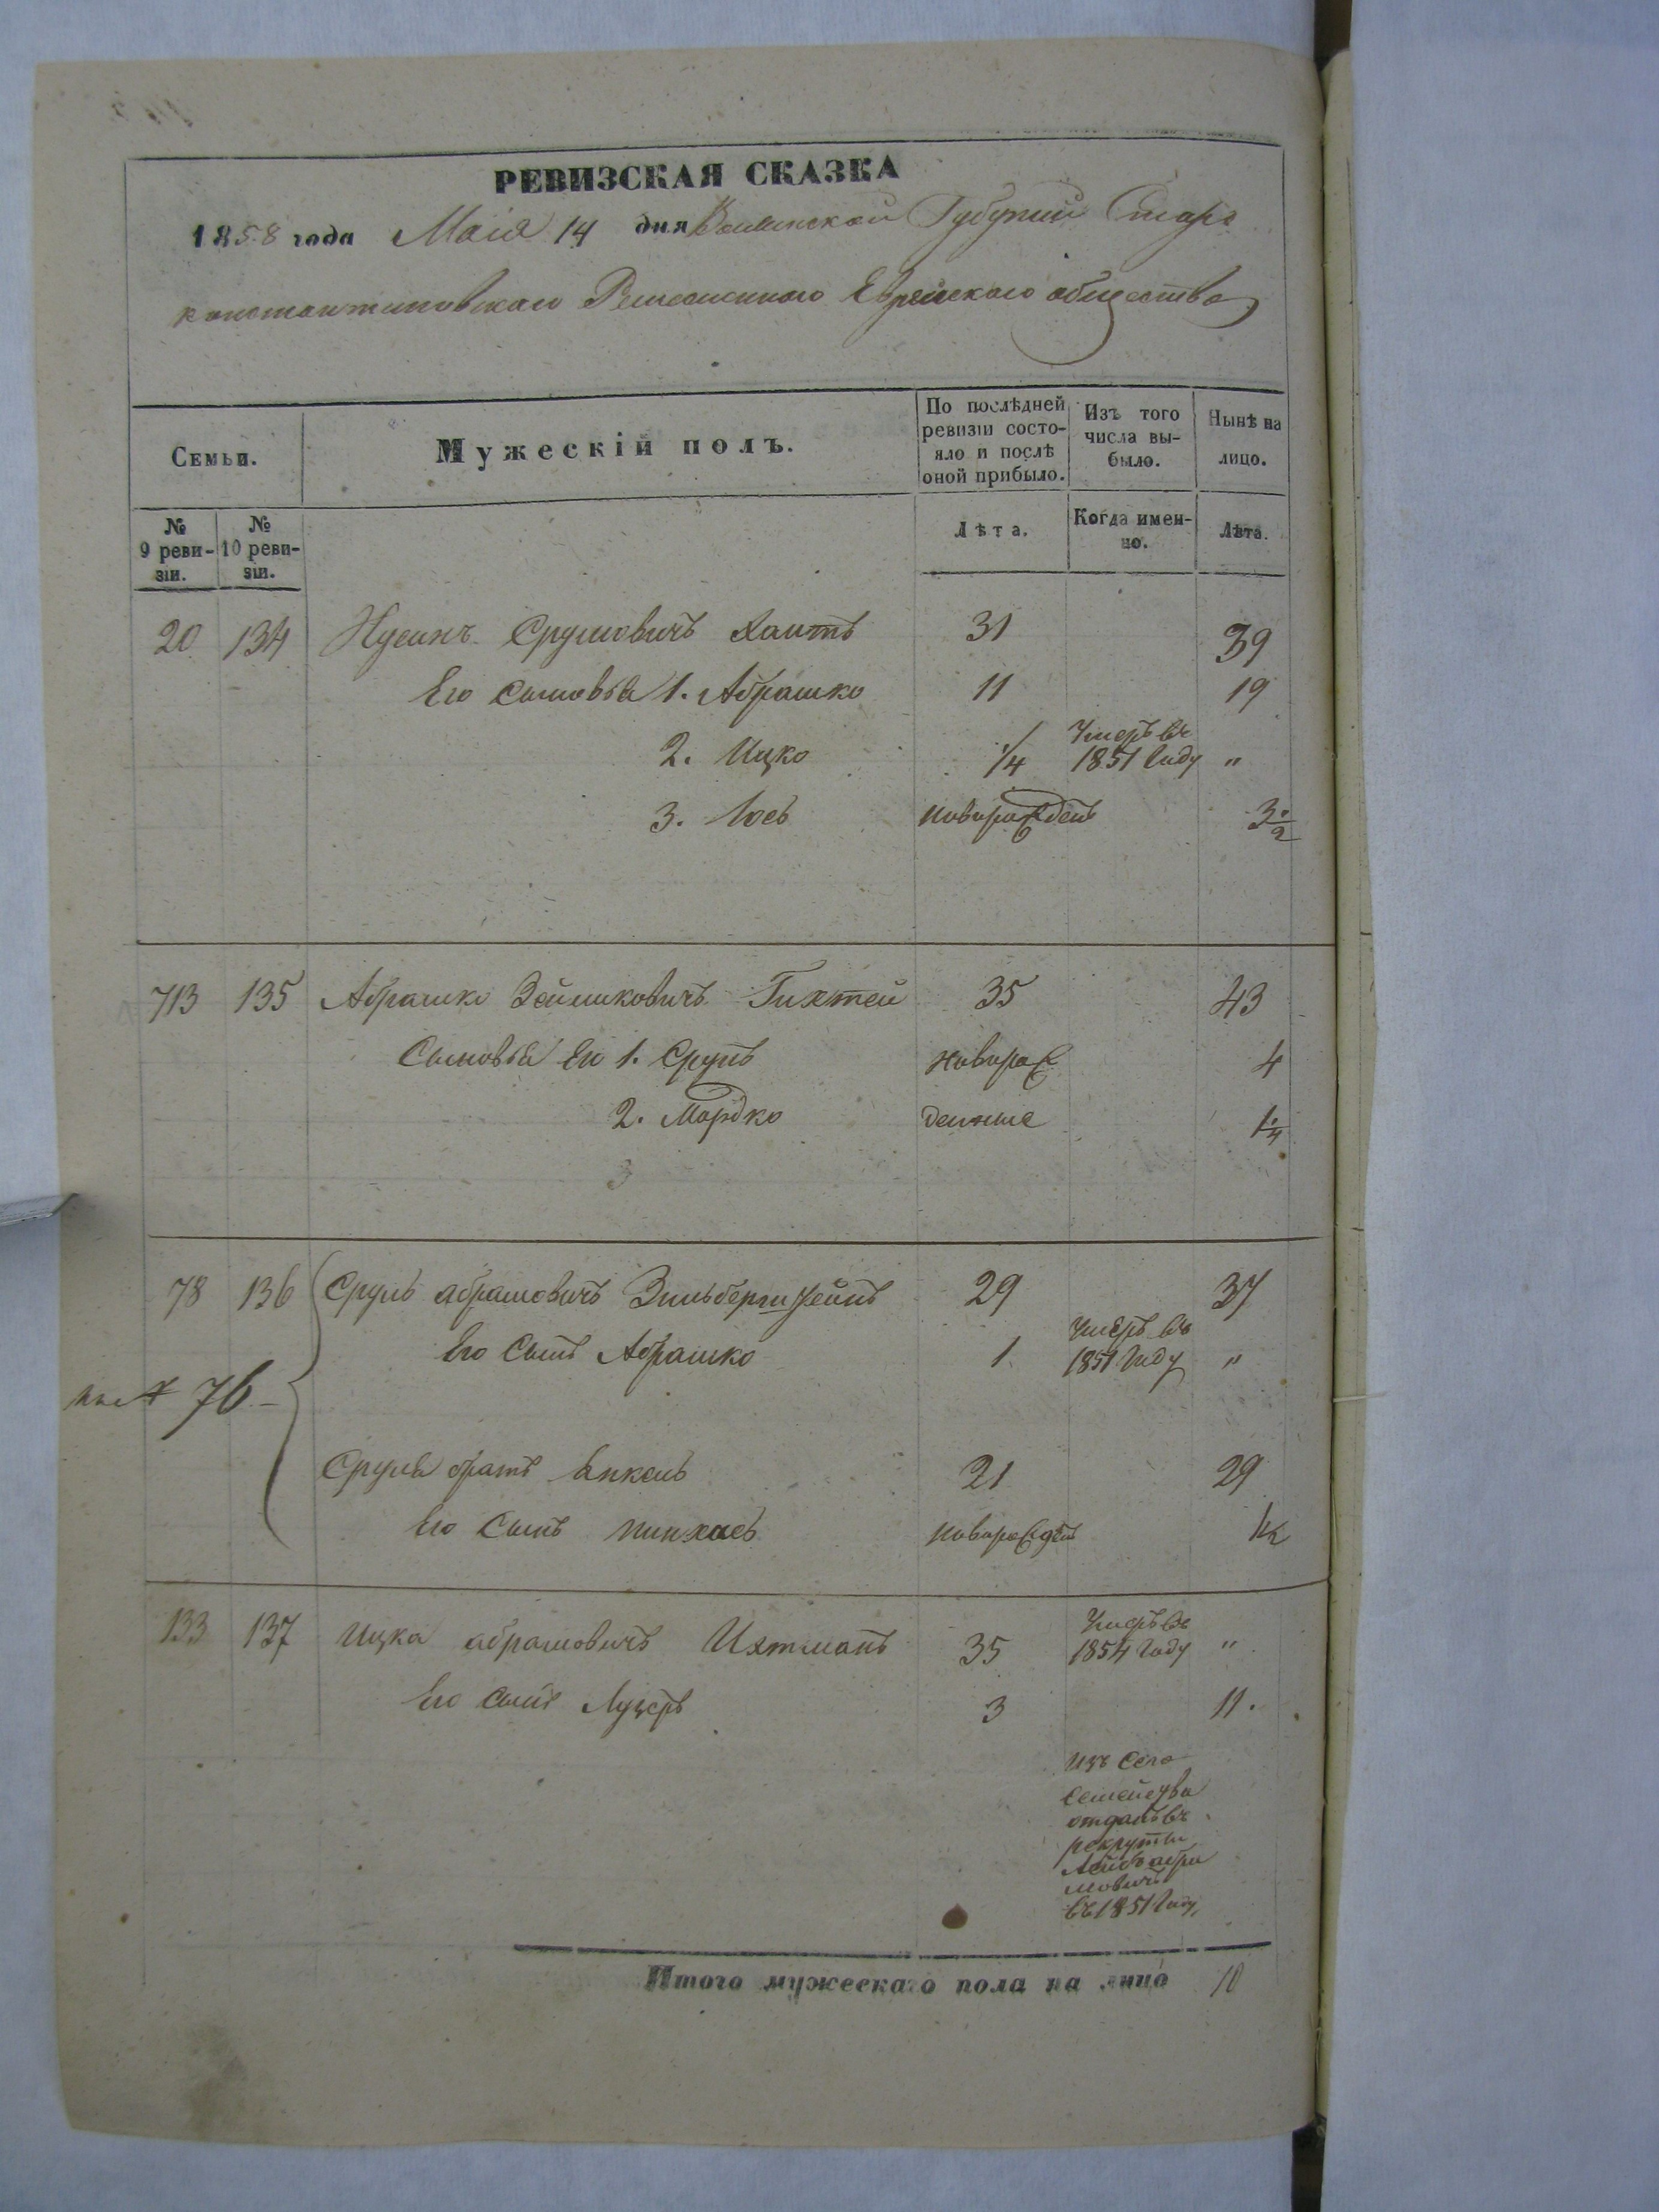 РЕВИЗСКАЯ СКАЗКА
1858 года Маія 14 дня Волынской Губерніи Старо
константиновскаго Ремесленнаго Еврейскаго общества
Семьи.
Мужескій полъ.
По послѣдней ревизіи состояло и послѣ оной прибыло.
Изъ того числа выбыло.
Нынѣ на лицо.
№ 9 ревизіи.
№ 10 ревизіи.
Лѣта.
Когда именно.
Лѣта.
20 134 Нусинъ Сруловичъ 31 39
Его сыновья 1. Абрашко 11 19
2. Ицко 1/4 Умеръ въ 1851 году "
3. Іось новорожденъ 3 1/2
713 135 Абрашко Зейликовичъ Гихтей 35 43
Сыновья его 1. Сруль новорож 4
2. Мордко денные 1/4
78 136 Сруль абрамовичъ Зильберштейнъ 29 37
Его сынъ Абрашко 1 Умеръ въ 1851 году "
76
Сруля братъ Янкель 21 29
Его сынъ пинхасъ новорожден 1/2
133 137 Ицка абрамовичъ Ихтманъ 35 Умеръ въ 1854 году "
Его сынъ Лузеръ 3 11.
Изъ сего
семейства
отданъ въ
рекруты
Лейбъ абра
мовичъ
въ 1851 году
Итого мужескаго пола на лицо 10